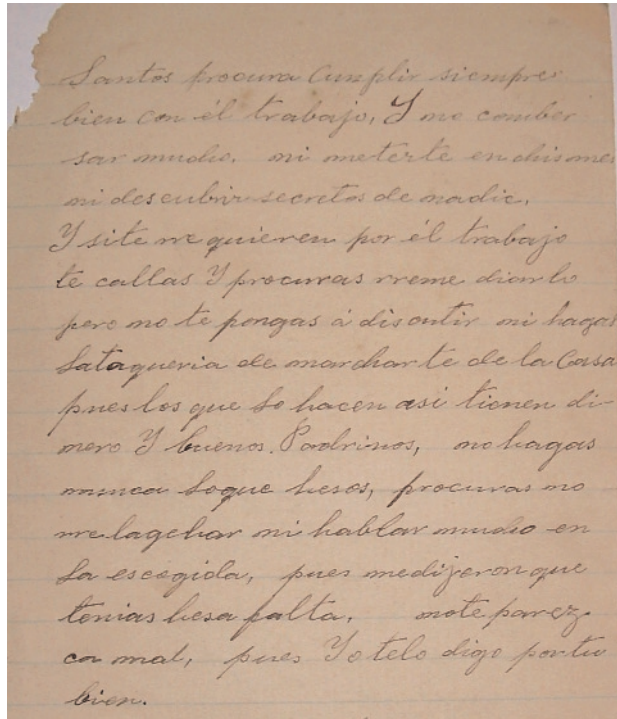 Santos procura Cunplir siempre
bien con él trabajo, Y no comber
sar mucho. ni meterte en chismes
ni descubrir secretos de nadie.
Y site rrequieren por él trabajo
te callas Y procuras rreme diarlo
pero no te pongas á discutir ni hagas
lataqueria de marcharte de la Casa
pues los que lo hacen asi tienen di-
nero Y buenos. Padrinos, no hagas
nunca loque heesos, procuras no
rrelagehar ni hablar mucho en
la escogida, pues medijeron que
tenias hesa falta. note parez-
ca mal, pues Yo telo digo por tu
bien.